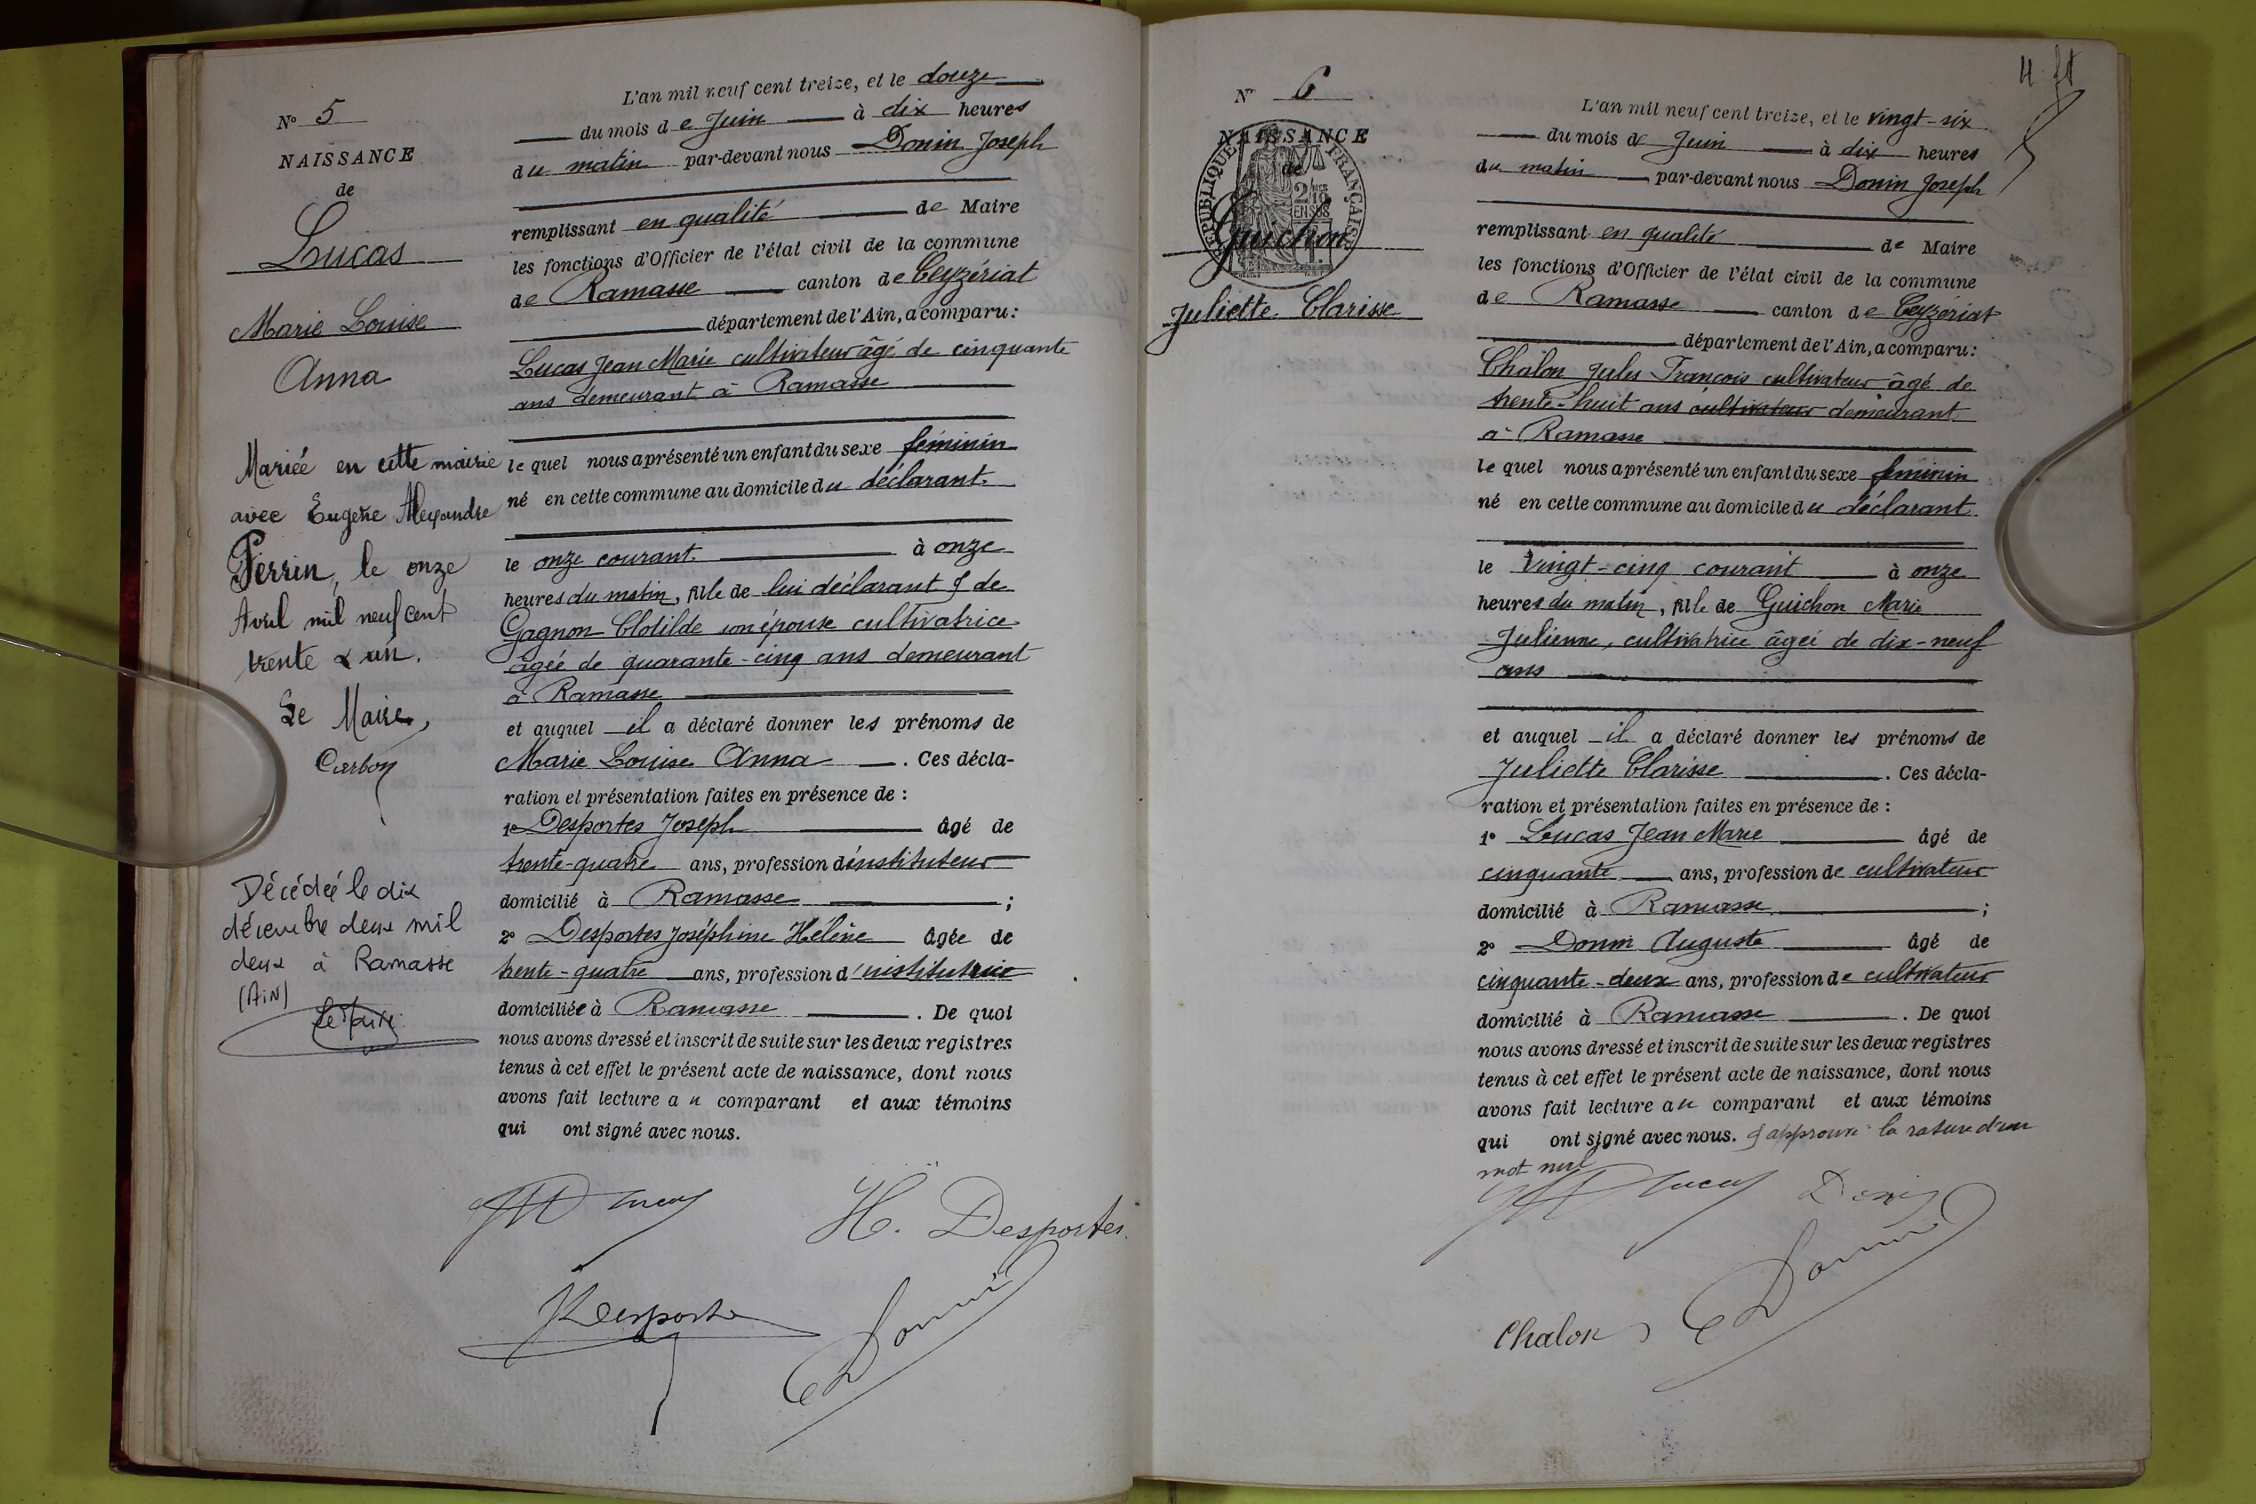 N° 5
NAISSANCE
de
Lucas
Marie Louise
Anna
Mariée en cette mairie
avec Eugène Alexandre
Perrin, le onze
Avril mil neuf cent
trente & un.
Le Maire,
Décédée le dix
décembre deux mil
deux à Ramasse
(AIN)
Le Maire
L'an mil neuf cent treize, et le douze
du mois de Juin à dix heures
du matin par-devant nous Donin Joseph
remplissant en qualité de Maire
les fonctions d'Officier de l'état civil de la commune
de Ramasse canton de Ceyzériat
département de l'Ain, a comparu :
Lucas Jean Marie cultivateur âgé de cinquante
ans demeurant à Ramasse
lequel nous a présenté un enfant du sexe féminin
né en cette commune au domicile du déclarant.
le onze courant. à onze
heures du matin, fille de lui déclarant & de
Gagnon Clotilde son épouse cultivatrice
âgée de quarante-cinq ans demeurant
à Ramasse
et auquel il a déclaré donner les prénoms de
Marie Louise Anna . Ces décla-
ration et présentation faites en présence de :
1° Desportes Joseph âgé de
trente-quatre ans, profession d'instituteur
domicilié à Ramasse ;
2° Desportes Joséphine Hélène âgée de
trente-quatre ans, profession d'institutrice
domiciliée à Ramasse . De quoi
nous avons dressé et inscrit de suite sur les deux registres
tenus à cet effet le présent acte de naissance, dont nous
avons fait lecture au comparant et aux témoins
qui ont signé avec nous.
JM Lucas
H. Desportes
J Desportes
Donin
4. ft
N° 6
NAISSANCE
de
RÉPUBLIQUE FRANÇAISE
2/10
EN SUS
Guichon
Juliette Clarisse
L'an mil neuf cent treize, et le vingt-six
du mois de Juin à dix heures
du matin par-devant nous Donin Joseph
remplissant en qualité de Maire
les fonctions d'Officier de l'état civil de la commune
de Ramasse canton de Ceyzériat
département de l'Ain, a comparu :
Chalon Jules François cultivateur âgé de
trente-huit ans cultivateur demeurant
à Ramasse
lequel nous a présenté un enfant du sexe féminin
né en cette commune au domicile du déclarant
le vingt-cinq courant à onze
heures du matin, fille de Guichon Marie
Julienne, cultivatrice âgée de dix-neuf
ans
et auquel il a déclaré donner les prénoms de
Juliette Clarisse . Ces décla-
ration et présentation faites en présence de :
1° Lucas Jean Marie âgé de
cinquante ans, profession de cultivateur
domicilié à Ramasse ;
2° Donin Auguste âgé de
cinquante-deux ans, profession de cultivateur
domicilié à Ramasse . De quoi
nous avons dressé et inscrit de suite sur les deux registres
tenus à cet effet le présent acte de naissance, dont nous
avons fait lecture au comparant et aux témoins
qui ont signé avec nous. J'approuve la rature d'un
mot nul
JM Lucas
Donin
Chalon